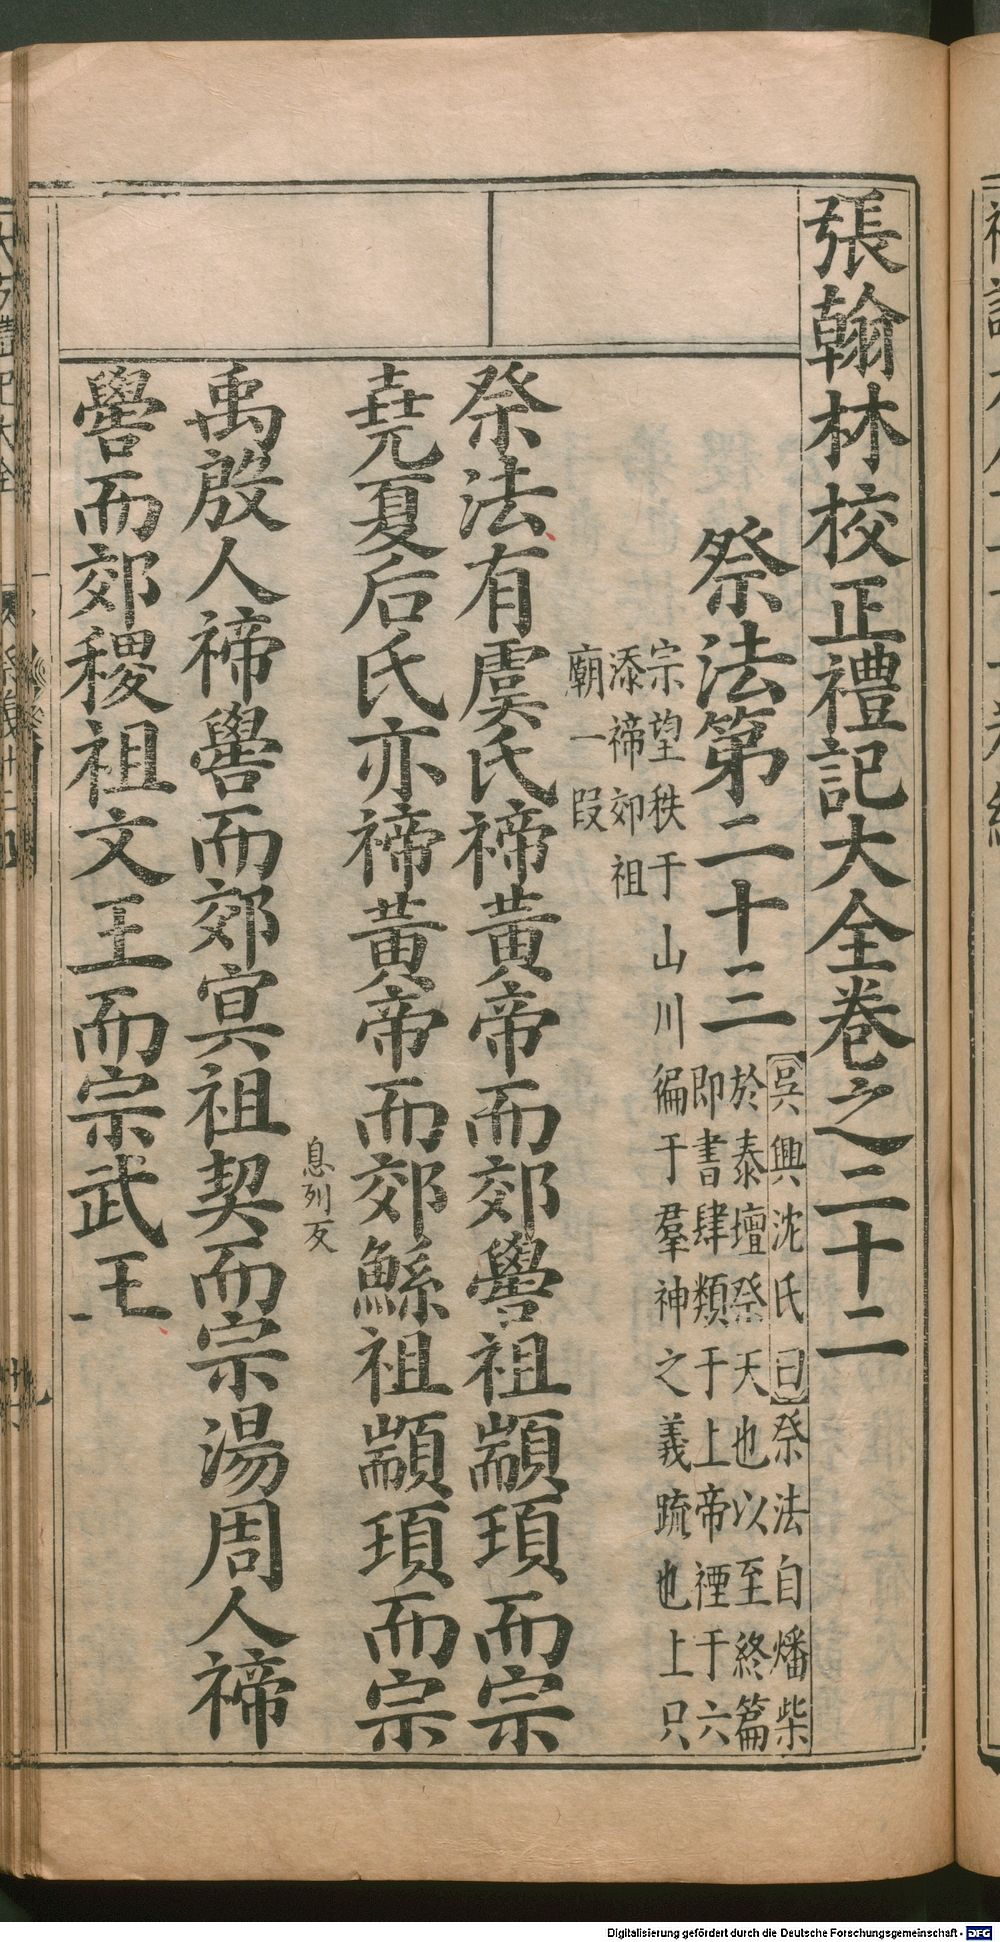 張翰林校正禮記大全卷之二十二
祭法第二十三
吳興沈氏曰祭法自燔柴
於泰壇祭天也以至終篇
即書肆類于上帝禋于六
宗望秩于山川徧于羣神之義疏也上只
添禘郊祖
廟一段
祭法有虞氏禘黄帝而郊嚳祖顓頊而宗
堯夏后氏亦禘黄帝而郊鯀祖顓頊而宗
息列反
禹殷人禘嚳而郊冥祖契而宗湯周人禘
嚳而郊稷祖文王而宗武王
Digitalisierung gefördert durch die Deutsche Forschungsgemeinschaft - DFG